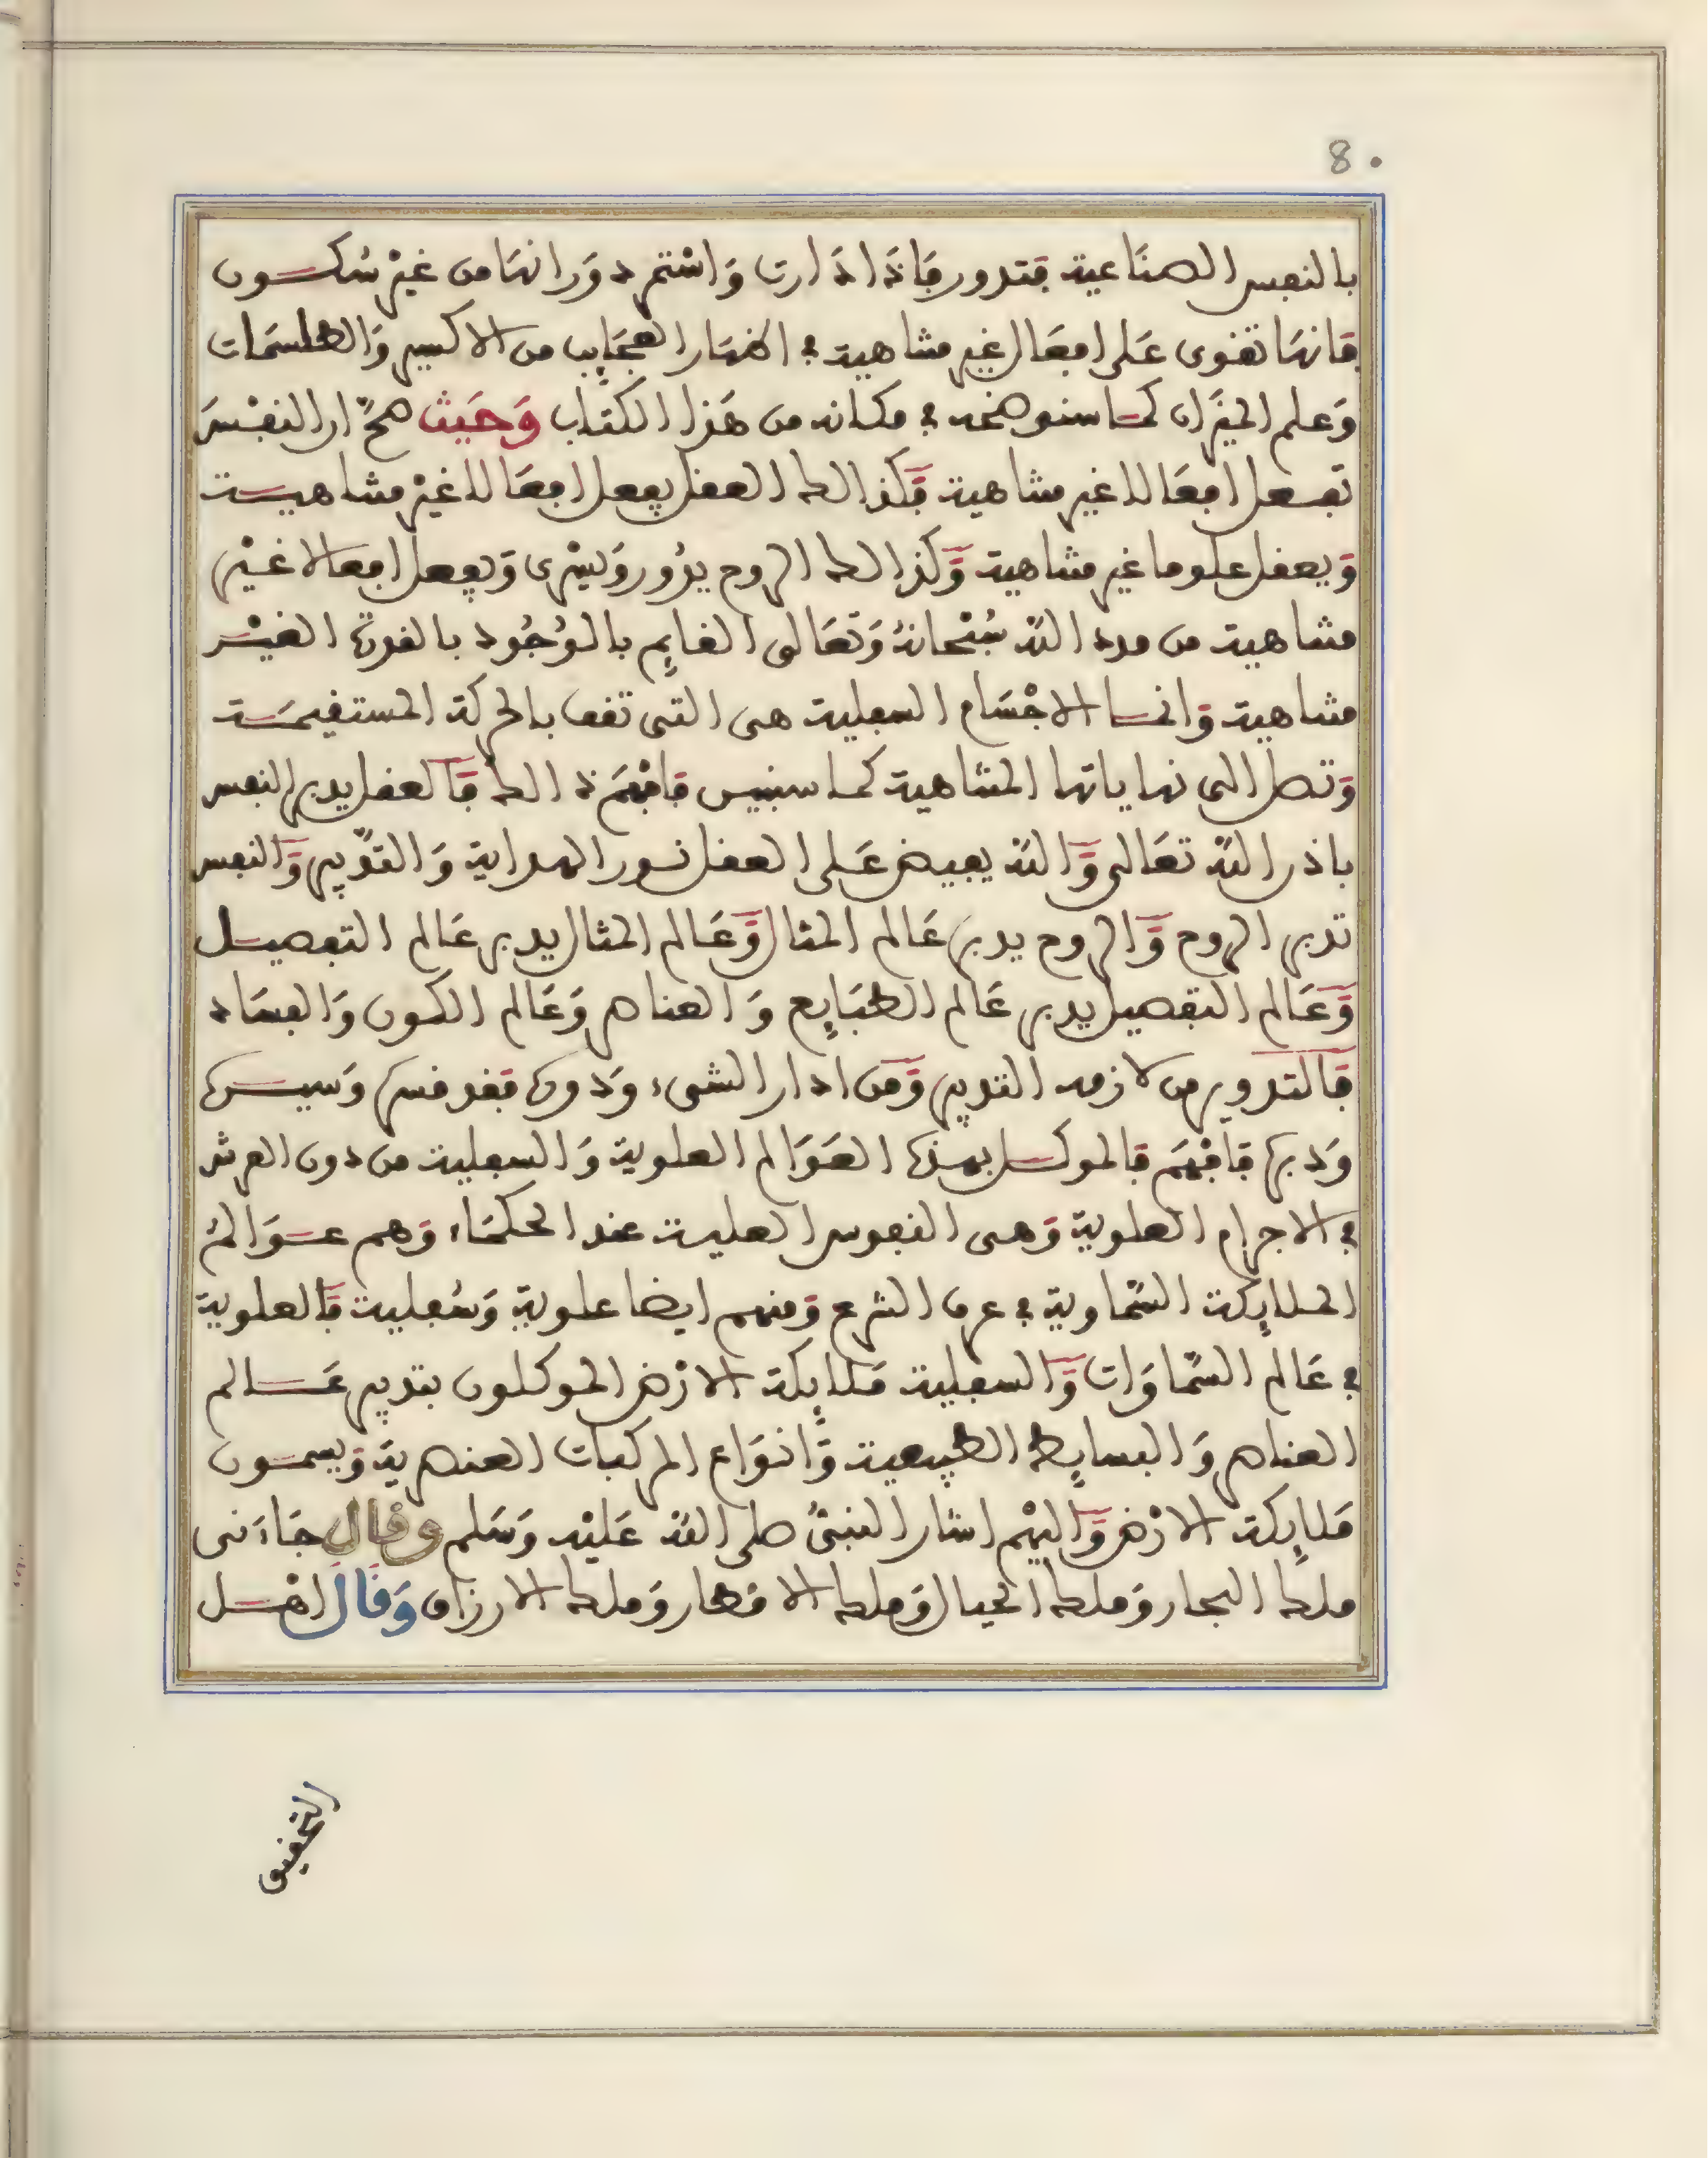 8.
بالنفس الصناعية فتدور فَاذَا اذَارت وَاسْتمر دوَرانهَا من غيْر سُكـــون
فَانهَا تقوى عَلى افعَال غير متناهية في اظهَار العجَايب من الاكسير وَالطلسمَات
وَعلم الميزَان كمـا سنوضحه في مكانه من هَذا الكتَاب وَحَيث صحَّ ان النفْسَ
تفـعل افعَالا غير متناهية فَكذالك العقل يفعل افعَالا غيْر متناهيــة
وَيعقل علوما غير متناهية وَكذالك الروح يدُور وَيسْرى وَيفعل افعالا غيْر
متناهية من مدد الله سُبْحَانهُ وَتعَالى القايم بالوُجُود بالقوة الغيْــر
متناهية وَانمـا الاجْسَام السفلية هى التى تقف بالحركة المستقيمَــة
وَتصل الى نهاياتها المتناهية كمـا سنبيـن فَافْهَمْ ذالك فَالعقل يدبر النفس
باذن الله تعَالى وَالله يفيض عَلى العقل نـور الهداية وَالتدَّبير وَالنفس
تدبر الروح وَالروح يدبر عَالم المثال وَعَالم المثال يدبر عَالم التفصيـل
وَعَالم التفصيل يدبر عَالم الطبَايع وَالعناصر وَعَالم الكون وَالفسَاد
فَالتدوير من لازمه التدبير وَمَن ادار الشىء وَدوره فقد قسره وَسيــره
وَدبره فَافْهَم فَالموكـل بهـذه العَوَالم العلوية وَالسفلية من دون العرش
في الاجرام العلوية وَهـى النفوس العليـة عند الحكمَاء وَهم عــوَالمُ
الملايكة السَّماوية في عرف الشرع وَمنهم ايضا علوية وَسُفلية فَالعلوية
في عَالم السَّماوَات وَالسفلية مَلايكة الارْض الموكلون بتدبير عَـــالم
العناصر وَالبسايط الطبيعية وَانوَاع المركبات العنصرية وَيسمـون
مَلايكة الارْض وَاليهْم اشار النبىُّ صلى الله عَليْه وَسَلم وقال جَاءَنى
ملك البحار وَملك الجبال وَملك الامْطار وَملك الارزاق وَقَالَ اهْـــل
التحقيق